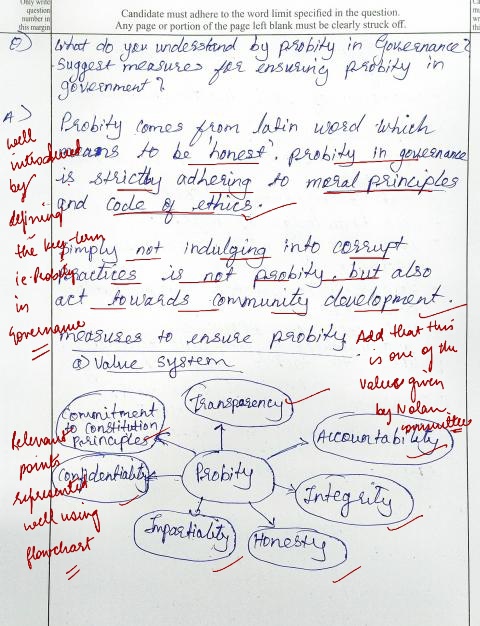 Only write
question
number in
this margin
Candidate must adhere to the word limit specified in the question.
Any page or portion of the page left blank must be clearly struck off.
Q) What do you understand by probity in Governance?
Suggest measures for ensuring probity in
government?
A) Probity comes from latin word which
means to be 'honest'. probity in governance
is strictly adhering to moral principles
and code of ethics.
Simply not indulging into corrupt
practices is not probity. but also
act towards community development.
measures to ensure probity
a) Value system
Transparency
Commitment
to constitution
principles
Accountability
Confidentiality
Probity
Integrity
Impartiality
Honesty
well
introduced
by
defining
the key-term
ie. Probity
in
Governance
Add that this
is one of the
values given
by Nolan
committee
Relevant
points
represented
well using
flowchart